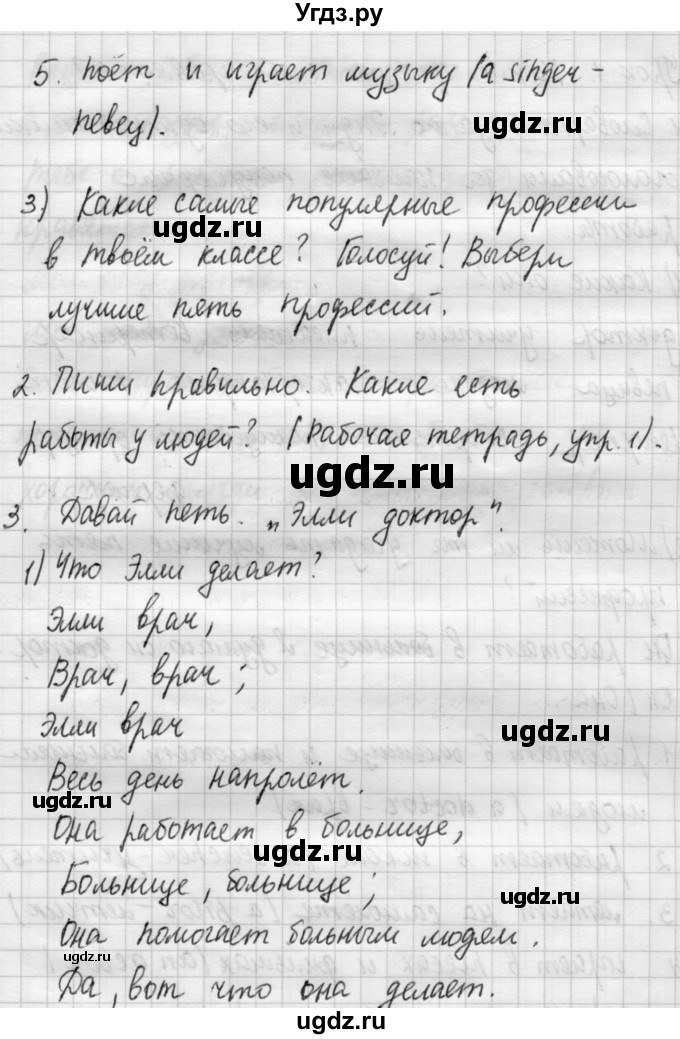 Угдз.ру
5. Поёт и играет музыку (a singer -
певец).
3) Какие самые популярные профессии
ugdz.ru
ugdz.ru
в твоём классе? Голосуй! Выбери
лучшие пять профессий.
2. Пиши правильно. Какие есть
работы у людей? (Рабочая тетрадь, упр. 1).
ugdz.ru
3. Давай петь. „Элли доктор".
1) Что Элли делает?
Элли врач,
Врач, врач;
ugdz.ru
Элли врач
ugdz.ru
Весь день напролёт.
ugdz.ru
Она работает в больнице,
ugdz.ru
Больнице, больнице;
ugdz.ru
Она помогает больным людям.
Да, вот что она делает.
ugdz.ru